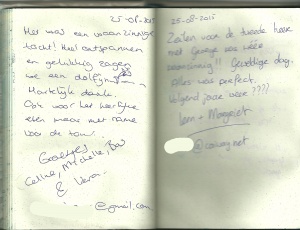 25-08-2015
Het was een waanzinnige
tocht! Heel ontspannen
en gelukkig zagen
we een dolfijn
Hartelijk dank.
Ook voor het heerlijke
eten maar met name
voor de tour.
Groetjes
Celine, Michelle, Bas
& Vera
@gmail.com
25-08-2015
Zeilen voor de tweede keer
met George was weer
waanzinnig!! Geweldige dag,
alles was perfect.
Volgend jaar weer ????
Leon + Margriet
@caiway.net